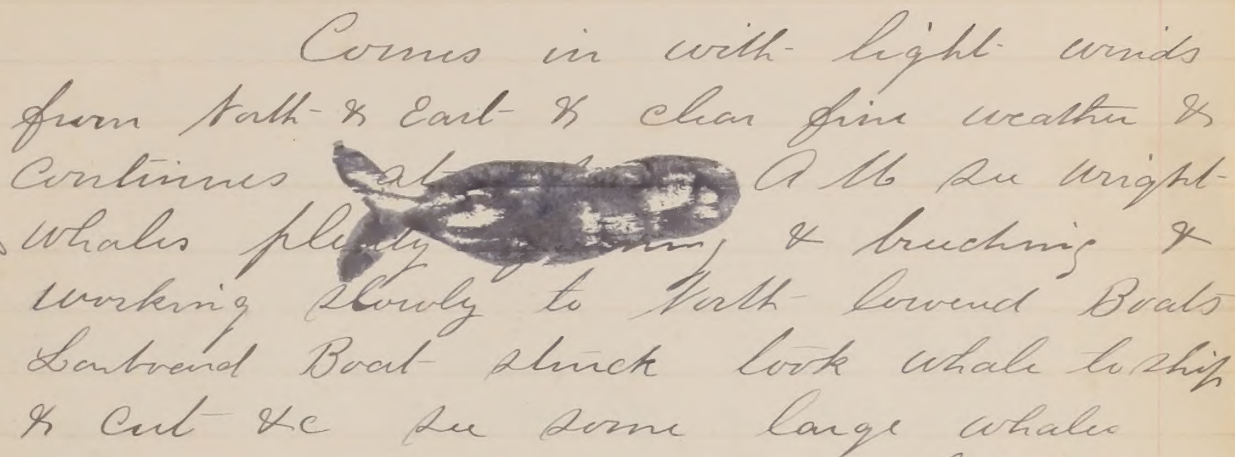 Comes in with light winds
from North & East & clear fine weather &
Continues at A M see wright
whales plenty & breeching &
working slowly to North lowered Boats
Larboard Boat struck took whale to ship
& cut &c see some large whales